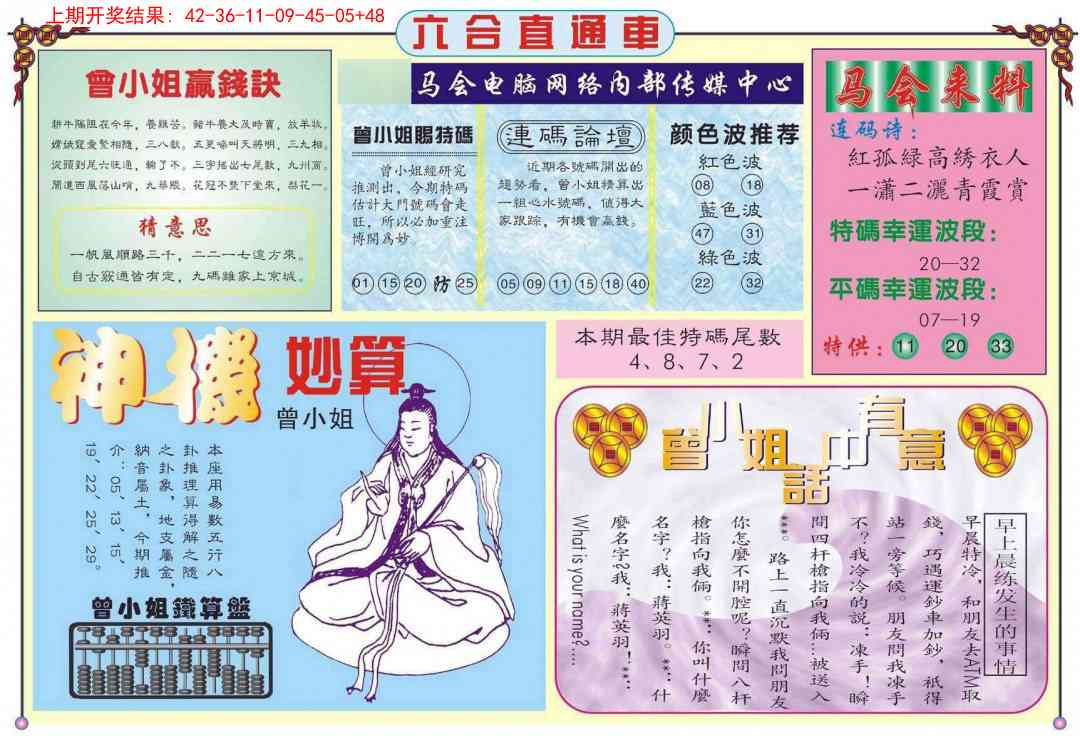 上期开奖结果: 42-36-11-09-45-05+48
六合直通車
马会电脑网络内部传媒中心
曾小姐贏錢訣
猜意思
一帆風順路三千，二二一七遠方來。
自古窮通皆有定，九碼雖家上京城。
曾小姐賜特碼
曾小姐經研究
推測出，今期特码
估計大門號碼會走
旺，所以必加重注
博開爲妙
01 15 20 防 25
連碼論壇
近期各號碼開出的
趨勢看，曾小姐精算出
一組心水號碼，值得大
家跟踪，有機會贏錢。
05 09 11 15 18 40
颜色波推荐
紅色波
08 18
藍色波
47 31
綠色波
22 32
马会来料
连码诗：
紅孤緑高綉衣人
一瀟二灑青霞賞
特碼幸運波段：
20—32
平碼幸運波段：
07—19
特供：11 20 33
本期最佳特碼尾數
4、8、7、2
神機妙算
曾小姐
本座用易數五行八
卦推理算得解之隨
之卦象，地支屬金，
納音屬土，今期推
介：05、13、15、
19、22、25、29。
曾小姐鐵算盤
曾小姐話中有意
早上晨练发生的事情
早晨特冷，和朋友去ATM取
錢，巧遇運鈔車加鈔，衹得
站一旁等候。朋友問我凍手
不？我冷冷的説：凍手！瞬
間四杆槍指向我倆…被送入
***。路上一直沉默我問朋友
你怎麼不開腔呢？瞬間八杆
槍指向我倆。**…你叫什麼
名字？我…蔣英羽。**…什
麼名字？我…蔣英羽！**…
What is your nome?....